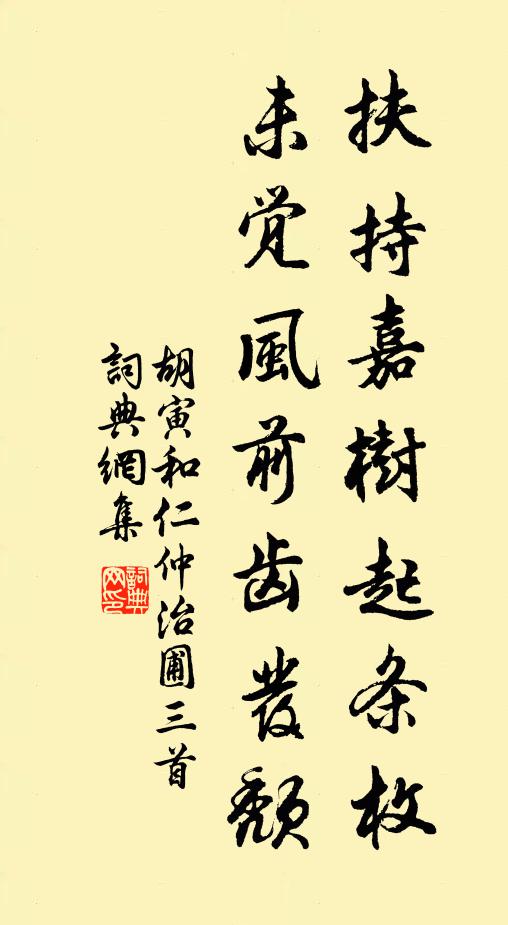 扶持嘉樹起条枚
未覚風前齿發颓
胡寅和仁仲治圃三首
詞典網集
詞典網印